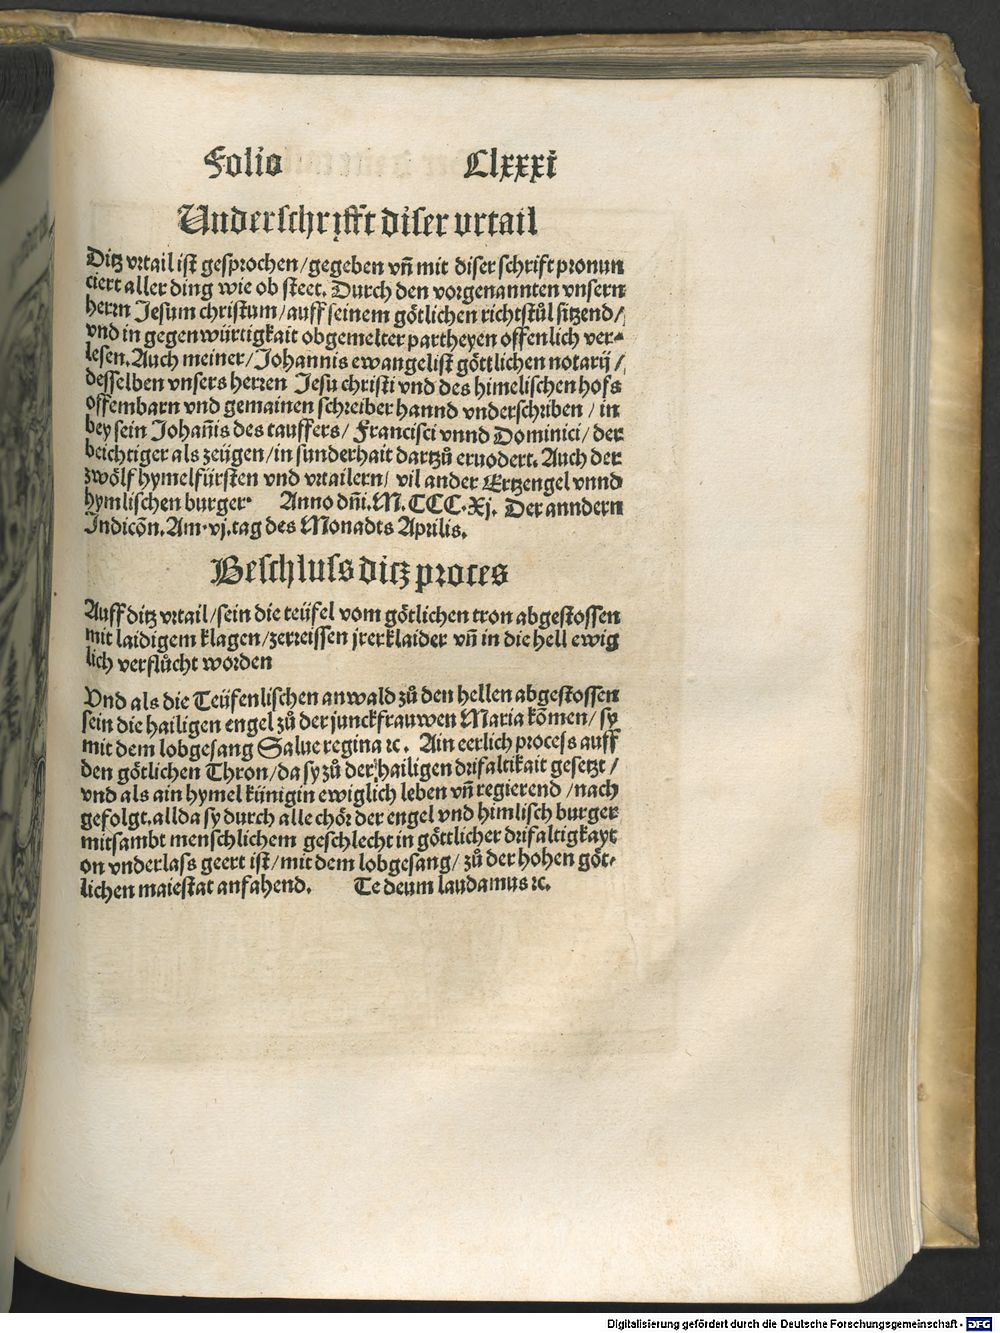 Folio Clxxxi
Underschrifft diser urtail
Ditz vrtail ist gesprochen/gegeben vn̄ mit diser schrift pronun
ciert aller ding wie ob steet. Durch den vorgenannten vnsern
herrn Jesum christum/auff seinem götlichen richtstůl sitzend/
vnd in gegenwürtigkait obgemelter partheyen offenlich ver-
lesen. Auch meiner/Johannis ewangelist göttlichen notarij/
desselben vnsers herren Jesu christi vnd des himelischen hofs
offembarn vnd gemainen schreiber hannd vnderschriben/in
bey sein Johan̄is des tauffers/Francisci vnnd Dominici/der
beichtiger als zeügen/in sunderhait dartzů eruodert. Auch der
zwölf hymelfürsten vnd vrtailern/vil ander Ertzengel vnnd
hymlischen burger. Anno dn̄i.M.CCC.Xj. Der anndern
Indicōn. Am.vj.tag des Monadts Aprilis.
Beschluss ditz proces
Auff ditz vrtail/sein die teüfel vom götlichen tron abgestossen
mit laidigem klagen/zerreissen jrerklaider vn̄ in die hell ewig
lich verflůcht worden
Vnd als die Teüfenlischen anwald zů den hellen abgestossen
sein die hailigen engel zů der junckfrauwen Maria kōmen/sy
mit dem lobgesang Salue regina ⁊c. Ain eerlich process auff
den götlichen Thron/da sy zů der hailigen drifaltikait gesetzt/
vnd als ain hymel künigin ewiglich leben vn̄ regierend/nach
gefolgt.allda sy durch alle chör der engel vnd himlisch burger
mitsambt menschlichem geschlecht in göttlicher drifaltigkayt
on vnderlass geert ist/mit dem lobgesang/zů der hohen göt-
lichen maiestat anfahend. Te deum laudamus ⁊c.
Digitalisierung gefördert durch die Deutsche Forschungsgemeinschaft - DFG